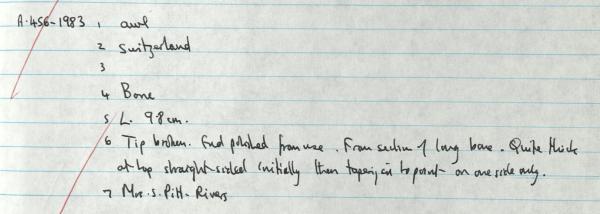 A.456-1983 1 awl
2 Switzerland
3
4 Bone
5 L. 98cm.
6 Tip broken. End polished from use. From section of long bone. Quite thick
at top straight-sided initially then tapering in to point - on one side only.
7 Mrs. S. Pitt-Rivers